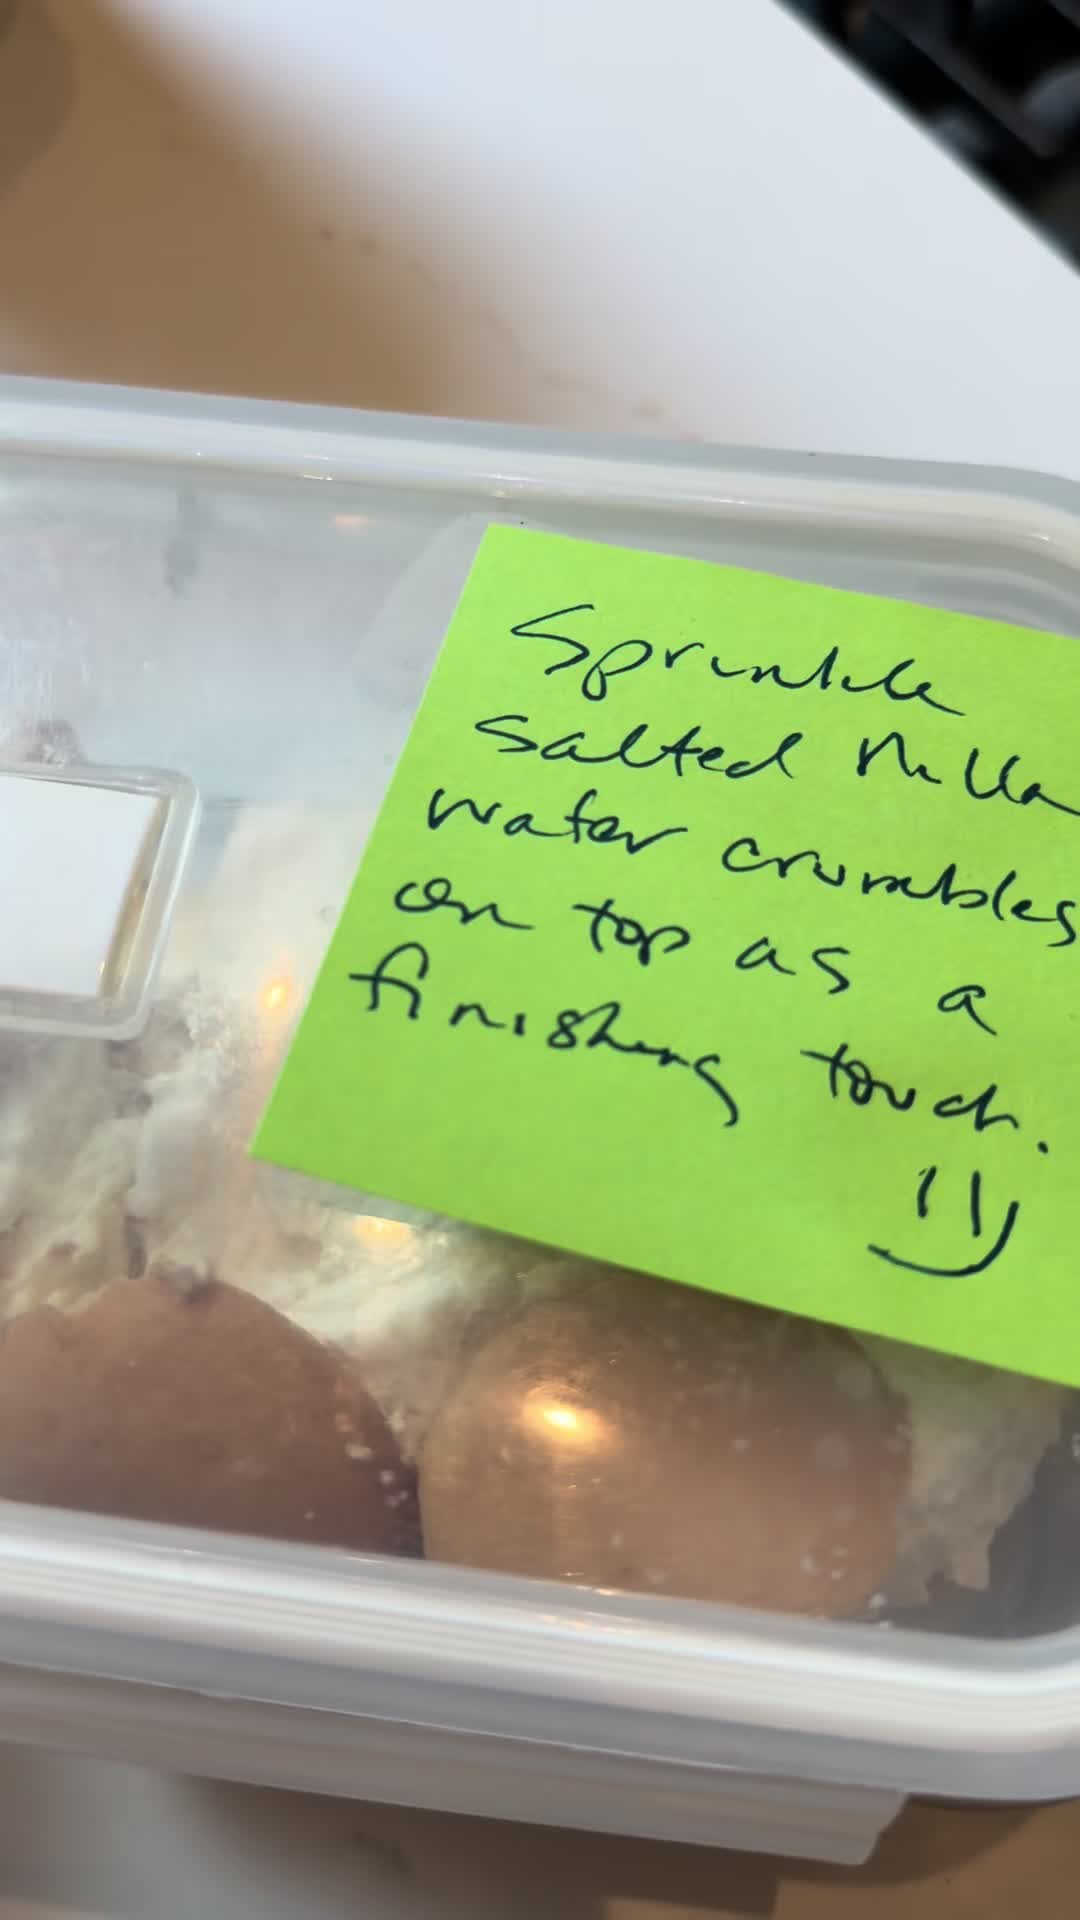 Sprinkle
salted Nilla
wafer crumbles
on top as a
finishing touch.